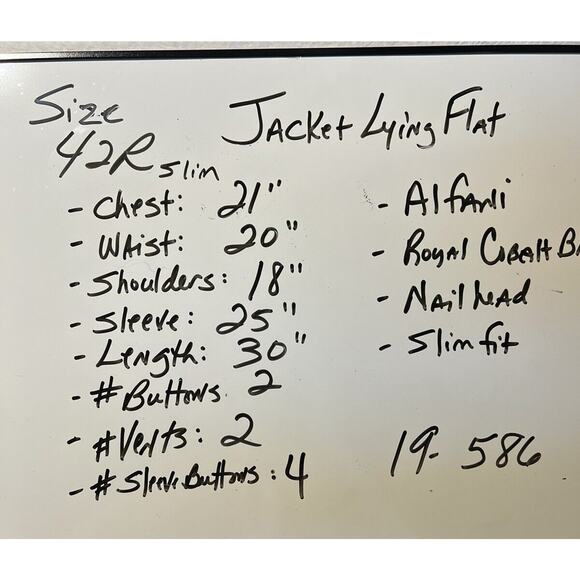 Size
42R slim
- Chest: 21"
- Waist: 20"
- Shoulders: 18"
- Sleeve: 25"
- Length: 30"
- # Buttons 2
- # Vents: 2
- # Sleeve Buttons: 4
Jacket Lying Flat
- Alfani
- Royal Cobalt
- Nailhead
- Slim fit
19-586